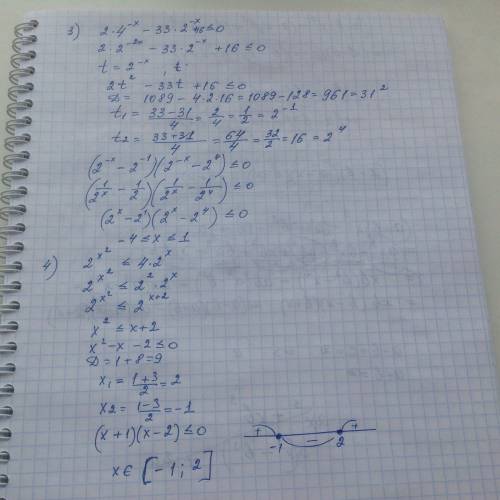 3) 2·4^{-x} - 33·2^{-x} +16 ≤ 0
2·2^{-2x} - 33·2^{-x} + 16 ≤ 0
t = 2^{-x}, t
2t² - 33t + 16 ≤ 0
D = 1089 - 4·2·16 = 1089 - 128 = 961 = 31²
t₁ = (33-31)/4 = 2/4 = 1/2 = 2^{-1}
t₂ = (33+31)/4 = 64/4 = 32/2 = 16 = 2^4
(2^{-x} - 2^{-1})(2^{-x} - 2^4) ≤ 0
(1/2^x - 1/2)(1/2^x - 1/2^4) ≤ 0
(2^x - 2^1)(2^x - 2^4) ≤ 0
-4 ≤ x ≤ 1
4) 2^{x²} ≤ 4·2^x
2^{x²} ≤ 2²·2^x
2^{x²} ≤ 2^{x+2}
x² ≤ x+2
x² - x - 2 ≤ 0
D = 1+8 = 9
x₁ = (1+3)/2 = 2
x2 = (1-3)/2 = -1
(x+1)(x-2) ≤ 0
+ - +
-1 2
x ∈ [-1; 2]